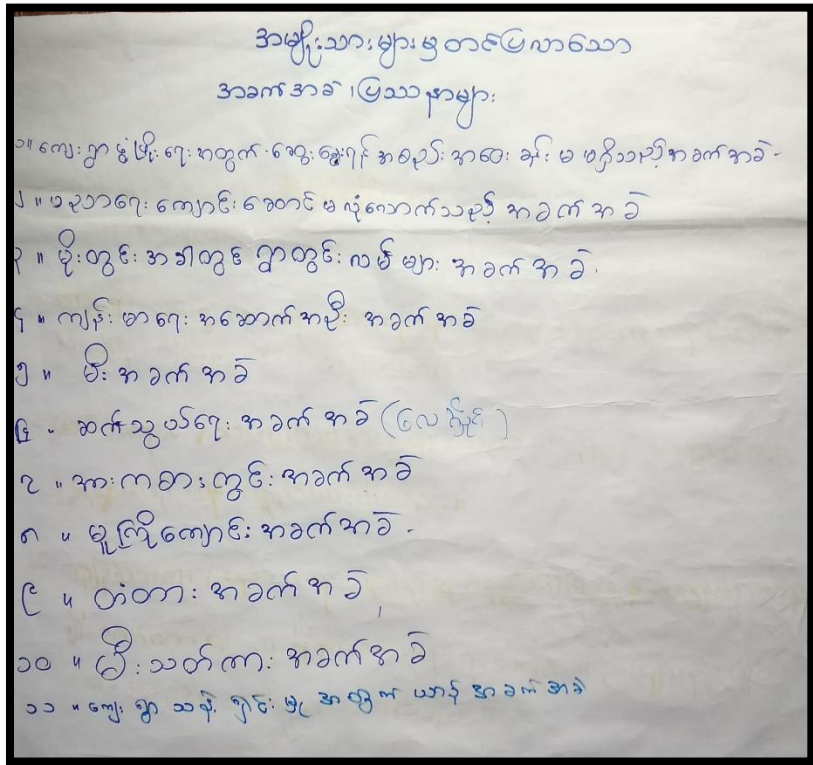 အမျိုးသားများမှတင်ပြလာသော
အခက်အခဲ၊ ပြဿနာများ
၁။ ကျေးရွာဖွံ့ဖြိုးရေးအတွက် ဆွေးနွေးရန် အစည်းအဝေးခန်းမ မရှိသည့်အခက်အခဲ-
၂။ ပညာရေးကျောင်းဆောင် မလုံလောက်သည့် အခက်အခဲ
၃။ မိုးတွင်းအခါတွင် ရွာတွင်းလမ်းများ အခက်အခဲ.
၄။ ကျန်းမာရေးအဆောက်အဦး အခက်အခဲ
၅။ မီးအခက်အခဲ
၆။ ဆက်သွယ်ရေးအခက်အခဲ (လေ)
၇။ အားကစားကွင်းအခက်အခဲ
၈။ မူကြိုကျောင်းအခက်အခဲ-
၉။ တံတားအခက်အခဲ
၁၀။ မီးသတ်ကားအခက်အခဲ
၁၁။ ကျေးရွာသန့်ရှင်းမှုအတွက် ယာဉ်အခက်အခဲ